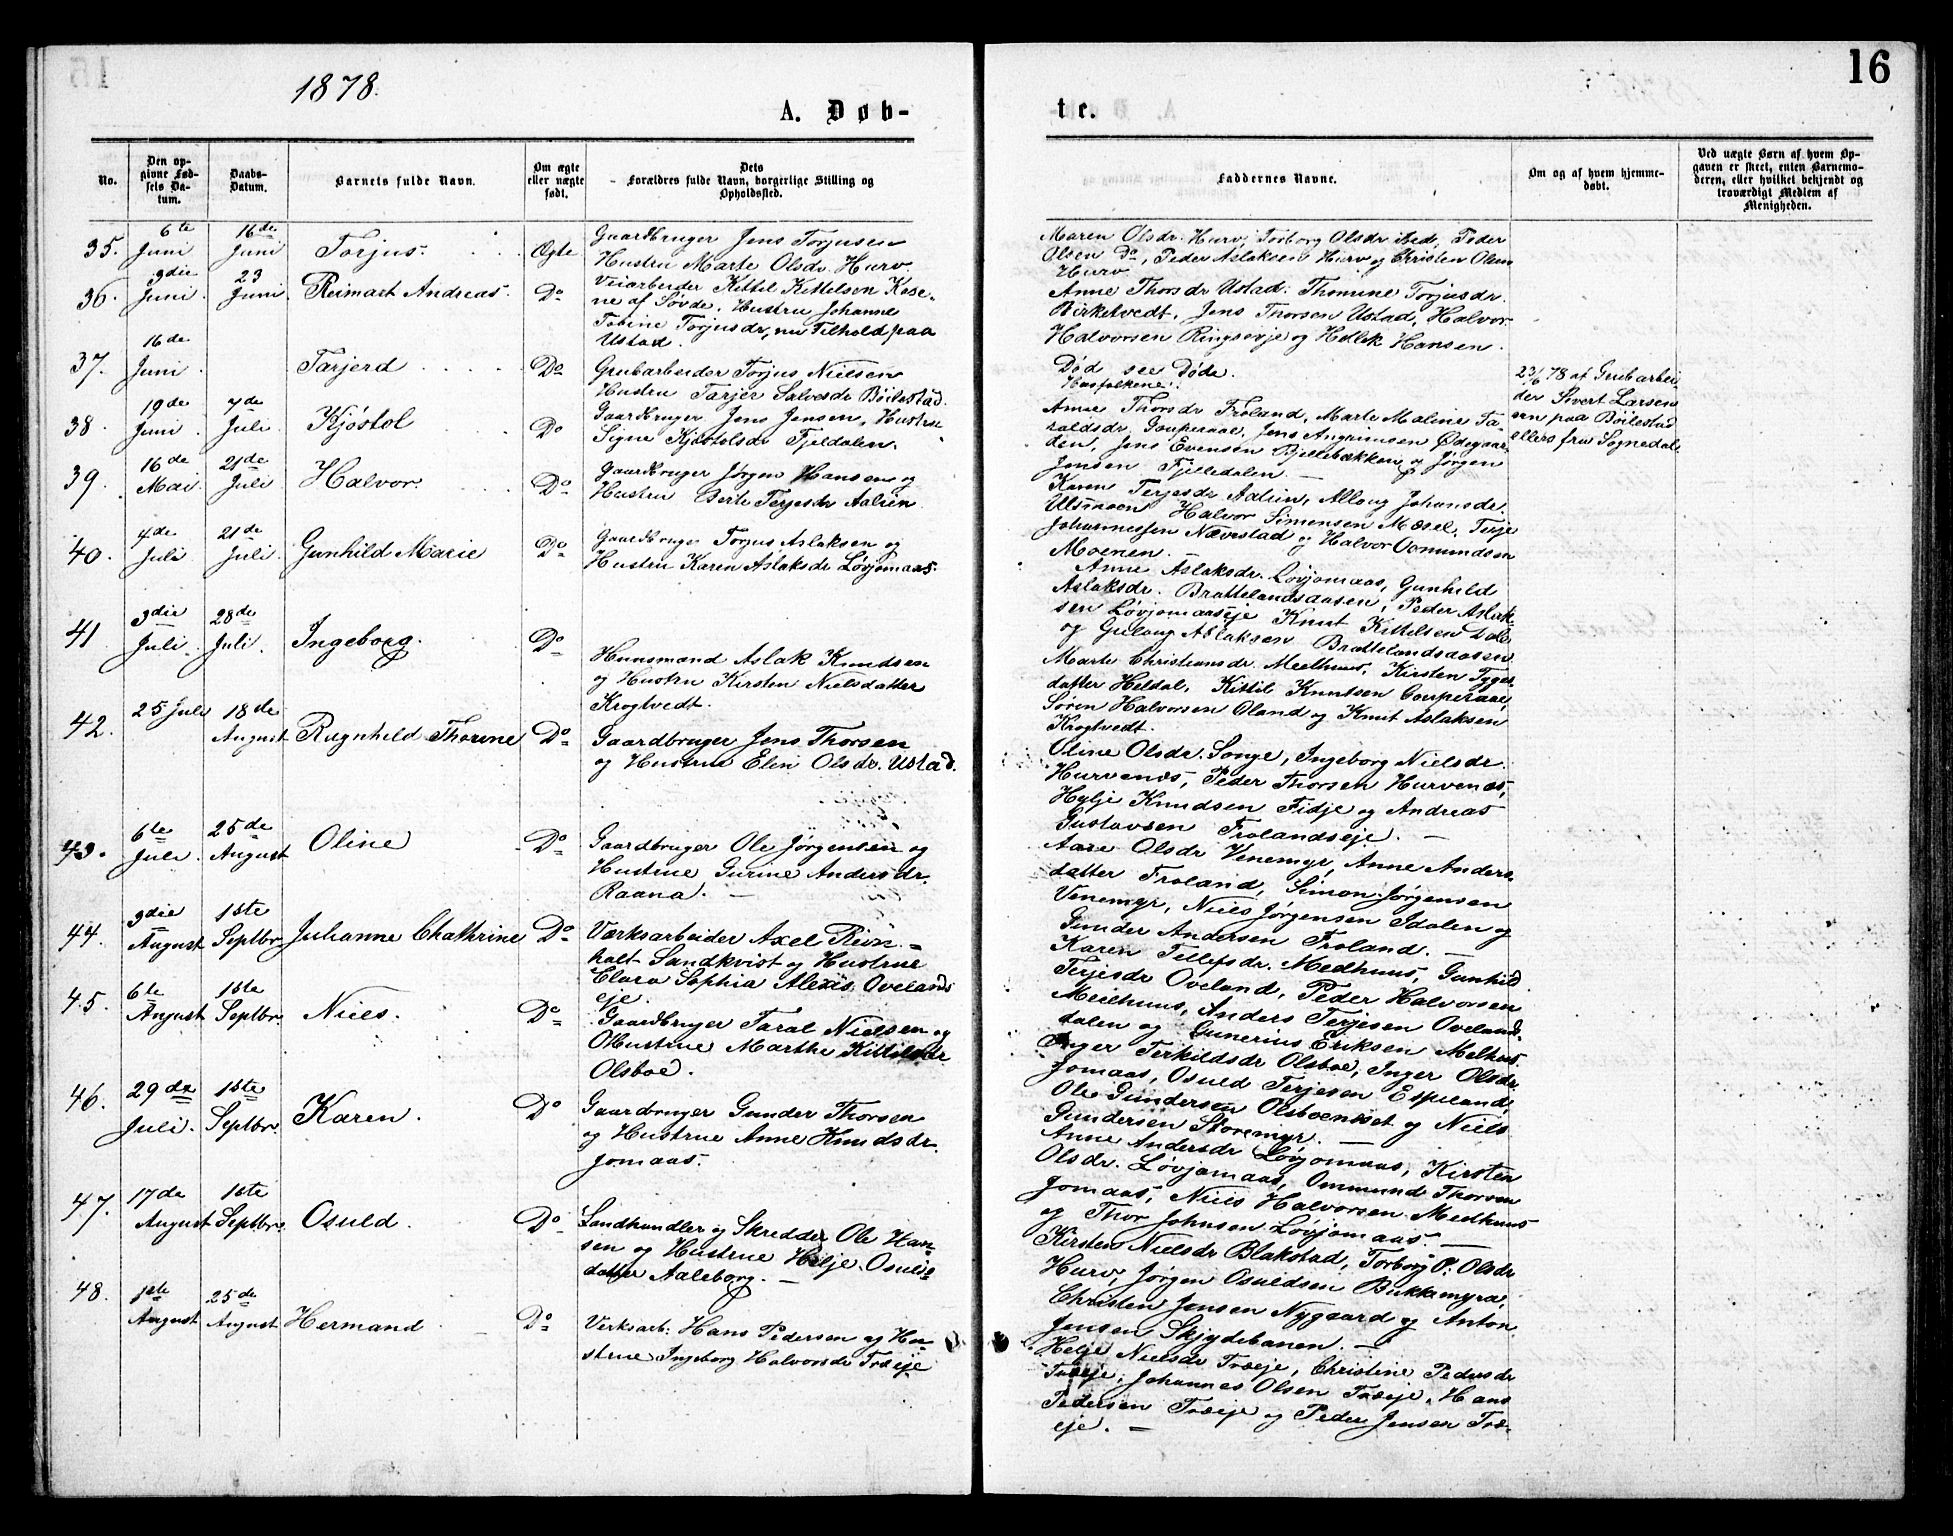 1878.
16
A. Døb-
te.
No.
Den op-
givne Fød-
sels Da-
tum.
Daabs-
Datum.
Barnets fulde Navn.
Om ægte
eller uægte
født.
Dets
Forældres fulde Navn, borgerlige Stilling og
Opholdssted.
Faddernes Navne.
Om og af hvem hjemme-
døbt.
Ved uægte Børn af hvem Op-
gaven er skeet, enten Barnemo-
deren, eller hvilket bekjendt og
troværdigt Medlem af
Menigheden.
35. 6te Juni 16de Juni Torjus. Ægte
Gaardbruger Jens Torjusen
Hustru Marte Olsdr. Hurv.
Maren Olsdr. Hurv, Torborg Olsdr ibed, Peder
Olsen Do, Peder Aslaksen Hurv og Christen Olsen
Hurv
36. 3die Juni 23 Juni Reimart Andreas. Do
Veiarbeider Kittil Kittelsen Kase-
ne af Søvde, Hustru Johanne
Tobine Torjusdr, nu Tilhold paa
Ustad.
Anne Thorsdr Ustad. Thomine Torjusdr.
Birketvedt, Jens Thorsen Ustad, Halvor
Halvorsen Ringseveje og Hellek Hansen.
37. 16de Juni Tarjerd Do
Grubarbeider Torjus Nielsen
Hustru Tarjer Salvesdr Böilestad.
Død see Døde.
23/6 78 af Grubarbei-
der Sivert Larsen
sen paa Böilestad
ellers fra Sognedal
38. 19de Juni 7de Juli Kjöstol Do
Gaardbruger Jens Jensen, Hustru
Signe Kjöstolsdr Fjeldalen.
Anne Thorsdr Froland, Marte Maline Ta-
raldsdr. Gouperaae, Jens Angrimsen Ødegaar-
den, Jens Evensen Bjellebækken og Jørgen
Jensen Fjelledalen.
39. 16de Mai 21de Juli Halvor. Do
Gaardbruger Jørgen Hansen og
Hustru Berte Terjesdr Aalien
Karen Terjesdr Aalien, Allaug Johansdr.
Ulsmoen Halvor Simensen Mæsel, Terje
Johannessen Nævestad og Halvor Osmundsen
Moenen.
40. 4de Juli 21de Juli Gunhild Marie Do
Gaardbruger Torjus Aslaksen og
Hustru Karen Aslaksdr Løvjomaas.
Anne Aslaksdr. Løvjomaas, Gunhild
Aslaksdr. Brattelandsaasen, Peder Aslak-
sen Løvjomaaseje Knut Kittelsen
og Gulaug Aslaksen Brattelandsaasen.
41 3die Juli. 28de Juli. Ingeborg. Do
Huusmand Aslak Knudsen
og Hustru Kirsten Nielsdatter
Krogtvedt.
Marte Christiansdr. Meelhuus, Kirsten Tyges-
datter Heldal, Kittil Knutsen Gouperaae,
Søren Halvorsen Oland og Knut Aslaksen
Krogtvedt.
42. 25 Juli 18de August Ragnhild Thorine Do
Gaardbruger Jens Thorsen
og Hustru Elen Olsdr. Ustad.
Oline Olsdr. Songe, Ingeborg Nielsdr.
Hurvenes, Peder Thorsen Hurvenes,
Hylje Knudsen Fidje og Andreas
Gustavsen Frolandseje.
43. 6te Juli. 25de August Oline Do
Gaardbruger Ole Jørgensen og
Hustrue Gurine Andersdr.
Raana.
Aase Olsdr Venemyr, Anne Anders-
datter Froland, Simon Jørgensen
Venemyr, Niels Jørgensen Idalen og
Gunder Andersen Froland.
44. 3die August 1ste Septbr. Julianne Chathrine Do
Værksarbeider Axel Rein-
holt Sandkvist og Hustrue
Clara Sophia Alexis Ovelands
eje.
Karen Tellefsdr. Medhuus, Gunhild
Terjesdr Oveland, Peder Halvorsen
Meelhuus, Anders Terjesen Oveland
dalen og Gunerius Eriksen Melhus
45. 6te August 1ste Septbr. Niels. Do
Gaardbruger Taral Nielsen og
Hustrue Marthe Kittilsdr
Olsboe.
Inger Terkildsdr Olsboe, Inger Olsdr.
Jomaas, Osuld Terjesen Espeland,
Ole Gundersen Olsboenæset og Niels
Gundersen Storemyr.
46. 29de Juli. 1ste Septbr. Karen. Do
Gaardbruger Gunder Thorsen
og Hustrue Anne Knudsdr.
Jomaas.
Anne Andersdr Løvjomaas, Kirsten
Olsdr. Løvjomaas, Ommund Thorsen
Jomaas, Niels Halvorsen Medhuus
og Thor Johnsen Løvjomaas.
47. 17de August 1ste Septbr. Osuld. Do
Landhandler og Skredder Ole Han-
sen og Hustrue Helje Osulds-
datter Aaleborg.
Kirsten Nielsdr Blakstad, Torborg P. Olsdr
Hurv, Jørgen Osuldsen Bukkemyra,
Christen Jensen Nygaard og Anton
Jensen Skjydebanen.
48. 1ste August 25de August Hermand Do
Verksarb: Hans Pedersen og Hu-
strue Ingeborg Halvorsdr Træeje
Helje Nielsdr Træeje, Christine Pedersdr
Træeje, Johannes Olsen Træeje, Hans
Pedersen Træeje og Peder Jensen Træ-
eje.